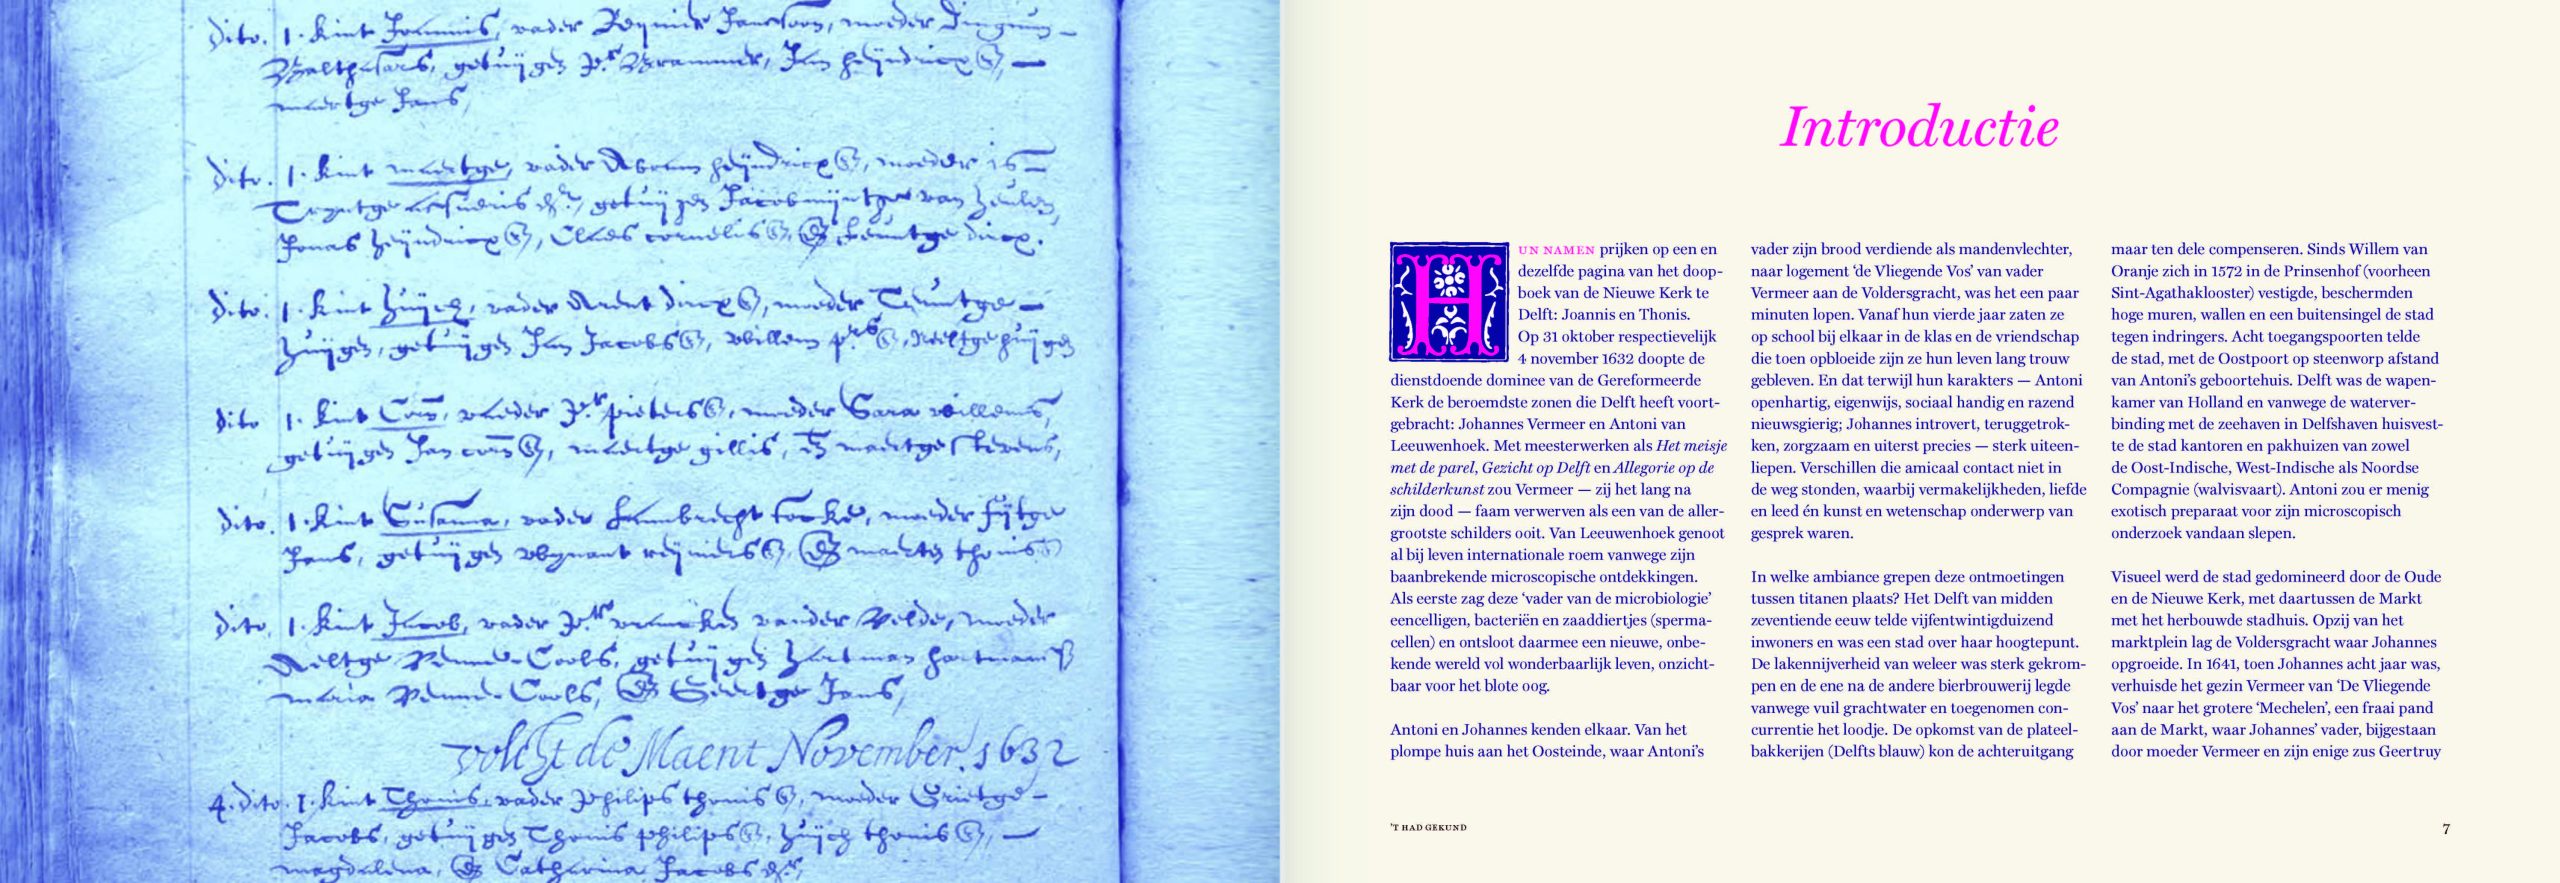 dito. 1. kint Joannis, vader Reynier Janssoon, moeder Dingnum
Balthasars, getuijgen Pr. Brammer, Jan heijndricxs,
maertge Jans,
dito. 1. kint maertge, vader Abram heijndricxs, moeder
getuijgen Jacobmijntge van
Jonas heijndricxs, Claes cornelis, teuntge dircx.
dito. 1. kint huijch, vader Arent dircxs, moeder Teuntge
huijgen, getuijgen Jan Jacobs, willem, neeltge huijgen
dito 1. kint, vaeder Pr. pieters, moeder Sara willems,
getuijgen Jan, maertge gillis, maertge stevens,
dito. 1. kint Susanna, vader Lambrecht, moeder fijtge
Jans, getuijgen reijniers, thonis
dito. 1. kint Jacob, vader Pr. vander Velde, moeder
Aeltge Cools, getuijgen
maria Cools, Geertge Jans,
volcht de Maent November. 1632
4. dito. 1. kint Thonis, vader Philips thonis, moeder Grietge
Jacobs, getuijgen Thonis philips, huijch thonis,
magdalena, Catharina Jacobs
Introductie
HUN NAMEN prijken op een en
dezelfde pagina van het doop-
boek van de Nieuwe Kerk te
Delft: Joannis en Thonis.
Op 31 oktober respectievelijk
4 november 1632 doopte de
dienstdoende dominee van de Gereformeerde
Kerk de beroemdste zonen die Delft heeft voort-
gebracht: Johannes Vermeer en Antoni van
Leeuwenhoek. Met meesterwerken als Het meisje
met de parel, Gezicht op Delft en Allegorie op de
schilderkunst zou Vermeer — zij het lang na
zijn dood — faam verwerven als een van de aller-
grootste schilders ooit. Van Leeuwenhoek genoot
al bij leven internationale roem vanwege zijn
baanbrekende microscopische ontdekkingen.
Als eerste zag deze ‘vader van de microbiologie’
eencelligen, bacteriën en zaaddiertjes (sperma-
cellen) en ontsloot daarmee een nieuwe, onbe-
kende wereld vol wonderbaarlijk leven, onzicht-
baar voor het blote oog.
Antoni en Johannes kenden elkaar. Van het
plompe huis aan het Oosteinde, waar Antoni’s
vader zijn brood verdiende als mandenvlechter,
naar logement ‘de Vliegende Vos’ van vader
Vermeer aan de Voldersgracht, was het een paar
minuten lopen. Vanaf hun vierde jaar zaten ze
op school bij elkaar in de klas en de vriendschap
die toen opbloeide zijn ze hun leven lang trouw
gebleven. En dat terwijl hun karakters — Antoni
openhartig, eigenwijs, sociaal handig en razend
nieuwsgierig; Johannes introvert, teruggetrok-
ken, zorgzaam en uiterst precies — sterk uiteen-
liepen. Verschillen die amicaal contact niet in
de weg stonden, waarbij vermakelijkheden, liefde
en leed én kunst en wetenschap onderwerp van
gesprek waren.
In welke ambiance grepen deze ontmoetingen
tussen titanen plaats? Het Delft van midden
zeventiende eeuw telde vijfentwintigduizend
inwoners en was een stad over haar hoogtepunt.
De lakennijverheid van weleer was sterk gekrom-
pen en de ene na de andere bierbrouwerij legde
vanwege vuil grachtwater en toegenomen con-
currentie het loodje. De opkomst van de plateel-
bakkerijen (Delfts blauw) kon de achteruitgang
maar ten dele compenseren. Sinds Willem van
Oranje zich in 1572 in de Prinsenhof (voorheen
Sint-Agathaklooster) vestigde, beschermden
hoge muren, wallen en een buitensingel de stad
tegen indringers. Acht toegangspoorten telde
de stad, met de Oostpoort op steenworp afstand
van Antoni’s geboortehuis. Delft was de wapen-
kamer van Holland en vanwege de waterver-
binding met de zeehaven in Delfshaven huisvest-
te de stad kantoren en pakhuizen van zowel
de Oost-Indische, West-Indische als Noordse
Compagnie (walvisvaart). Antoni zou er menig
exotisch preparaat voor zijn microscopisch
onderzoek vandaan slepen.
Visueel werd de stad gedomineerd door de Oude
en de Nieuwe Kerk, met daartussen de Markt
met het herbouwde stadhuis. Opzij van het
marktplein lag de Voldersgracht waar Johannes
opgroeide. In 1641, toen Johannes acht jaar was,
verhuisde het gezin Vermeer van ‘De Vliegende
Vos’ naar het grotere ‘Mechelen’, een fraai pand
aan de Markt, waar Johannes’ vader, bijgestaan
door moeder Vermeer en zijn enige zus Geertruy
’T HAD GEKUND
7